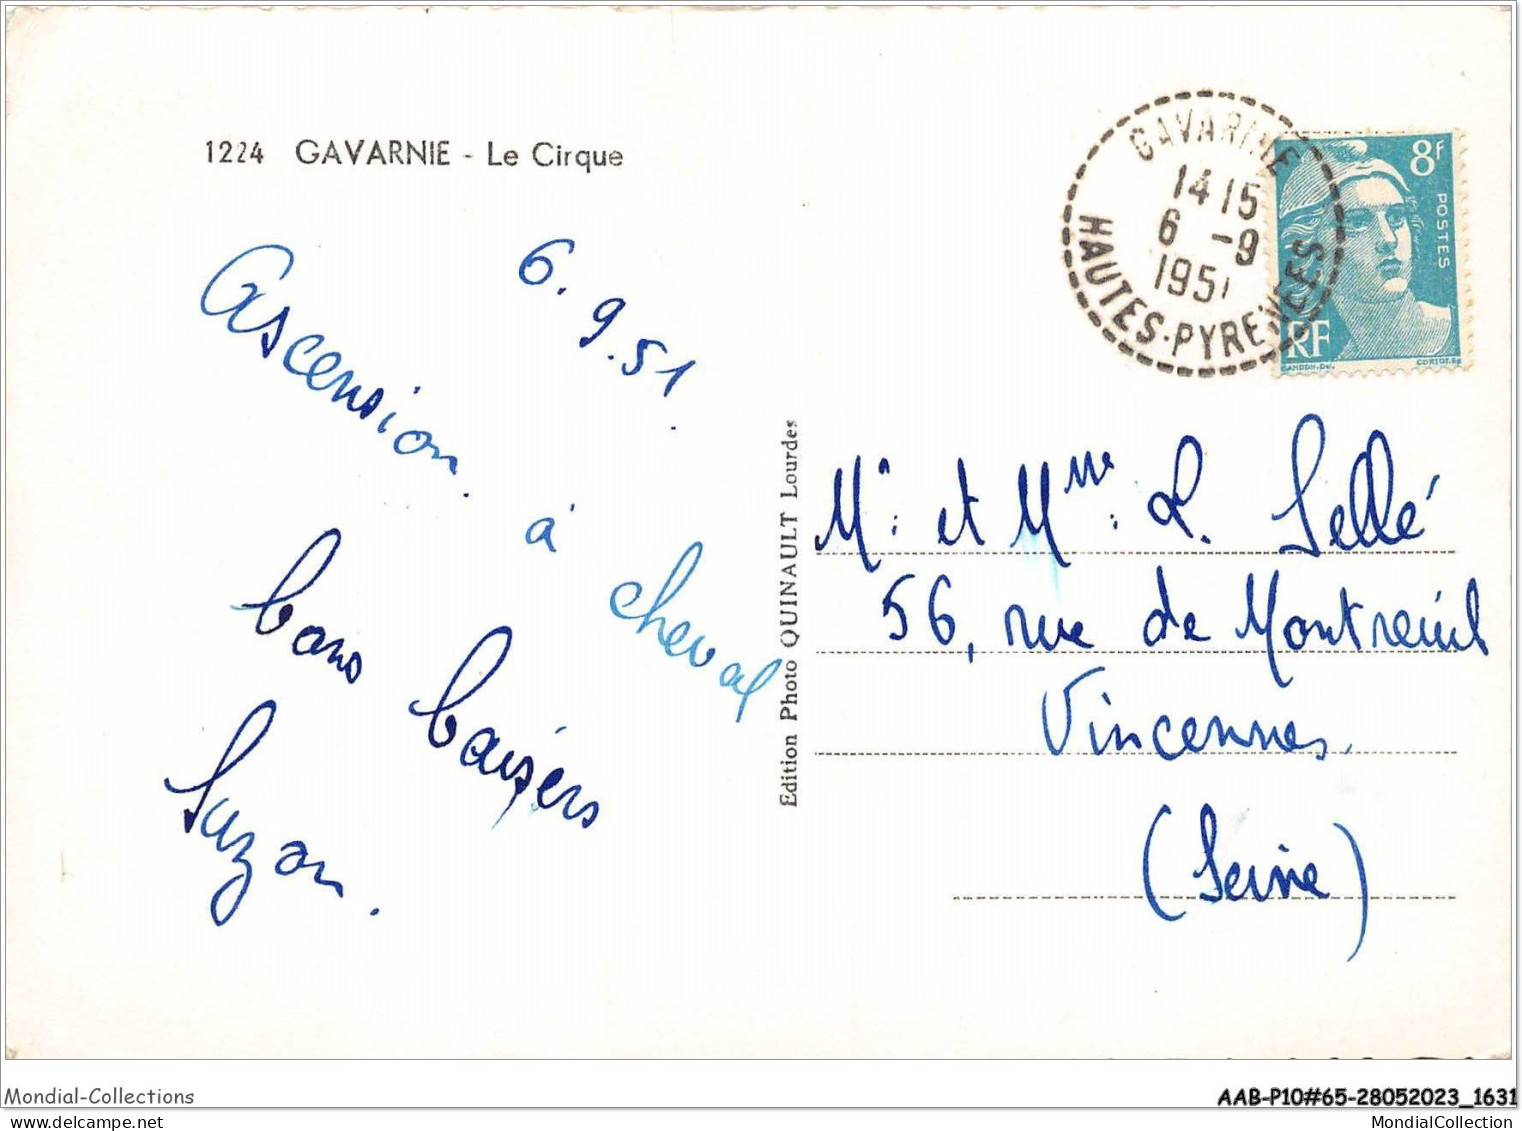 1224 GAVARNIE - Le Cirque
GAVARNIE
14 15
6 -9
1951
HAUTES-PYRENEES
8f
POSTES
RF
GANDON.DEL.
CORTOT.SC
6.9.51.
Ascension à cheval
bons baisers
Suzon.
Edition Photo QUINAULT Lourdes
Mr. et Mme. R. Sellé
56, rue de Montreuil
Vincennes.
(Seine)
Mondial-Collections
AAB-P10#65-28052023_1631
MondialCollection